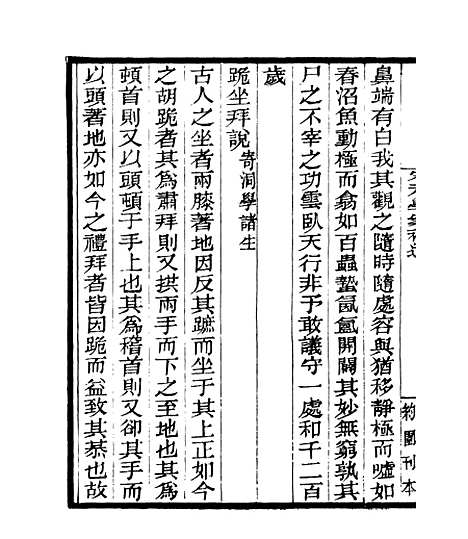 鼻端有白我其觀之隨時隨處容與猶移靜極而噓如
春沼魚動極而翕如百蟲蟄氤氳開闔其妙無窮孰其
尸之不宰之功雲臥天行非予敢議守一處和千二百
歲
跪坐拜說寄洞學諸生
古人之坐者兩膝著地因反其蹠而坐于其上正如今
之胡跪者其為肅拜則又拱兩手而下之至地也其為
頓首則又以頭頓于手上也其為稽首則又卻其手而
以頭著地亦如今之禮拜者皆因跪而益致其恭也故
刊本